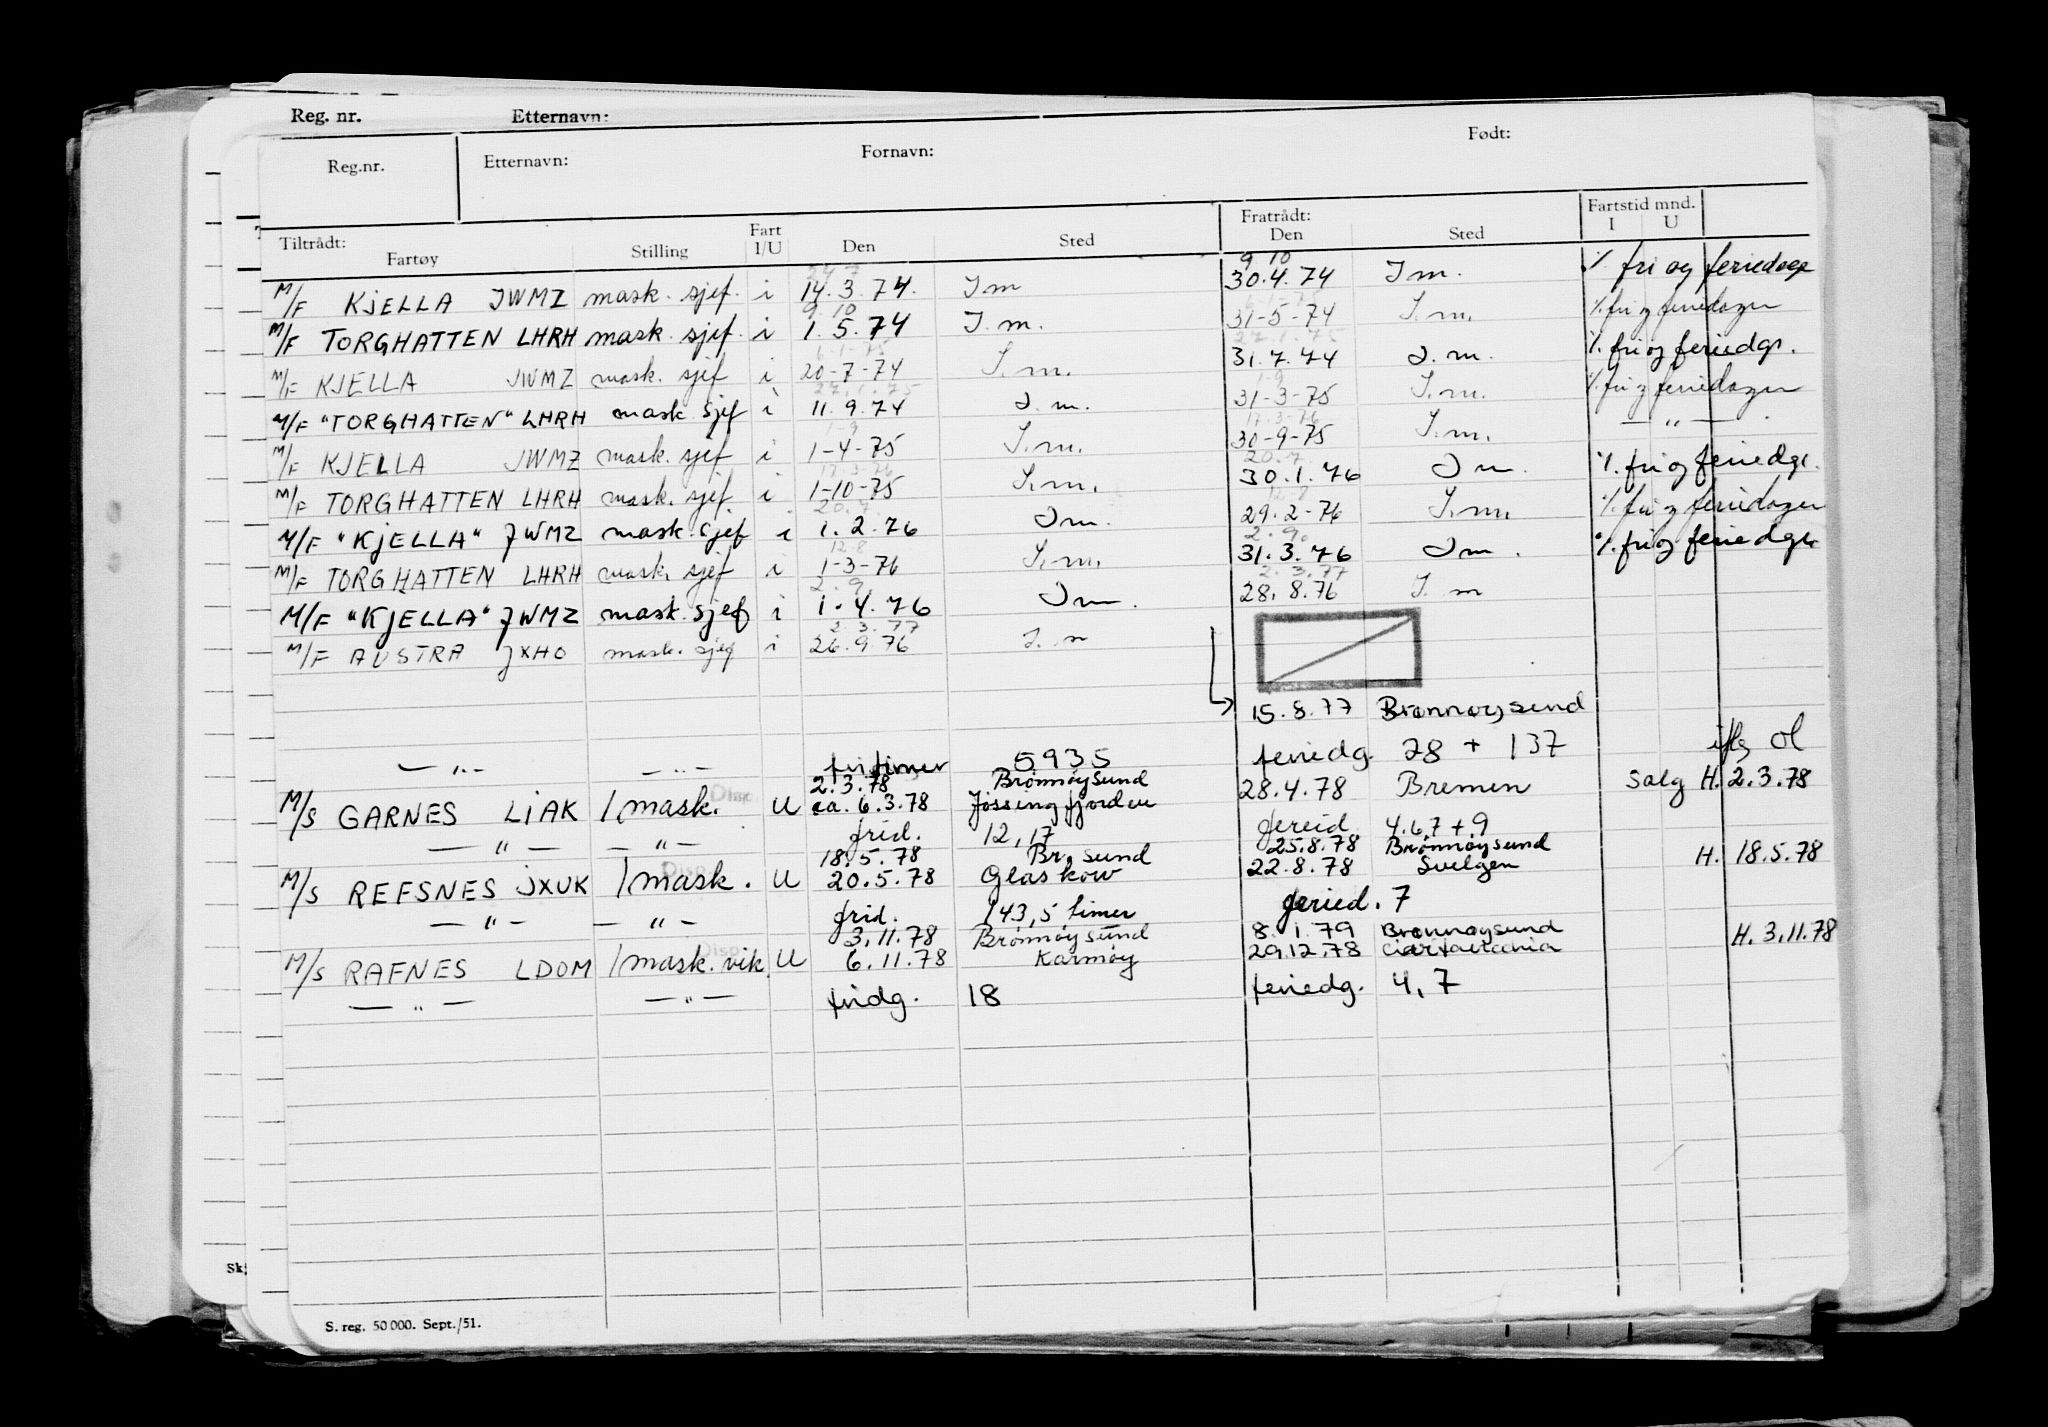 Reg. nr. Etternavn:
Reg.nr. Etternavn: Fornavn: Født:
Tiltrådt: Fart Fratrådt: Fartstid mnd.
Fartøy Stilling I/U Den Sted Den Sted I U
24 7 9 10
M/F KJELLA JWMZ mask. sjef. i 14.3.74. I m 30.4.74 I m. % fri og feriedage
9. 10
M/F TORGHATTEN LHRH mask. sjef. i 1.5.74 I. m. 31-5-74 I. m. % fri og feriedager
M/F KJELLA JWMZ mask. sjef i 20-7-74 I. m. 31.7.74 I. m. % fri og feriedgr.
M/F "TORGHATTEN" LHRH mask sjef i 11.9.74 I. m. 31-3-75 I. m. % fri og feriedager
1-9 17.3-76
M/F KJELLA JWMZ mask. sjef i 1-4-75 I. m. 30-9-75 I. m. — " —
17.3-76 20.7
M/F TORGHATTEN LHRH mask. sjef. i 1-10-75 I. m. 30.1.76 I m. % fri og feriedgr.
20.7. 12-8
M/F "KJELLA" JWMZ mask. sjef i 1.2.76 I m. 29.2-76 I. m. % fri og feriedager
12-8 2.9.
M/F TORGHATTEN LHRH mask. sjef i 1-3-76 I. m. 31.3.76 I m. % fri og feriedgr
2.9. 2.3.77
M/F "KJELLA" JWMZ mask. sjef i 1.4.76 I m. 28.8.76 I. m
2.3.77
M/F AUSTRA JXHO mask. sjef i 26.9.76 I. m
15.8.77 Brønnøysund
— " — — " — fritimer 5935 feriedg. 28 + 137 iflg Ol
2.3.78 Brønnøysund
M/S GARNES LIAK 1 mask. U ca. 6.3.78 Jøssingfjorden 28.4.78 Bremen Salg H. 2.3.78
— " — — " — frid. 12,17 fereid. 4.6,7 + 9
18.5.78 Br.sund 25.8.78 Brønnøysund
M/S REFSNES JXUK 1 mask. U 20.5.78 Glaskow 22.8.78 Svelgen H. 18.5.78
— " — — " — frid. 143,5 timer feried. 7
3.11.78 Brønnøysund 8.1.79 Brønnøysund
M/S RAFNES LDOM 1 mask. vik. U 6.11.78 Karmøy 29.12.78 H. 3.11.78
— " — — " — fridg. 18 feriedg. 4,7
Sk.
S. reg. 50 000. Sept./51.